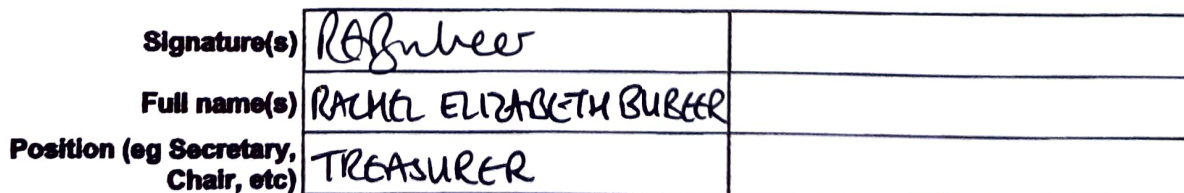 Signature(s) REBubeer
Full name(s) RACHEL ELIZABETH BUBEER
Position (eg Secretary, TREASURER
Chair, etc)